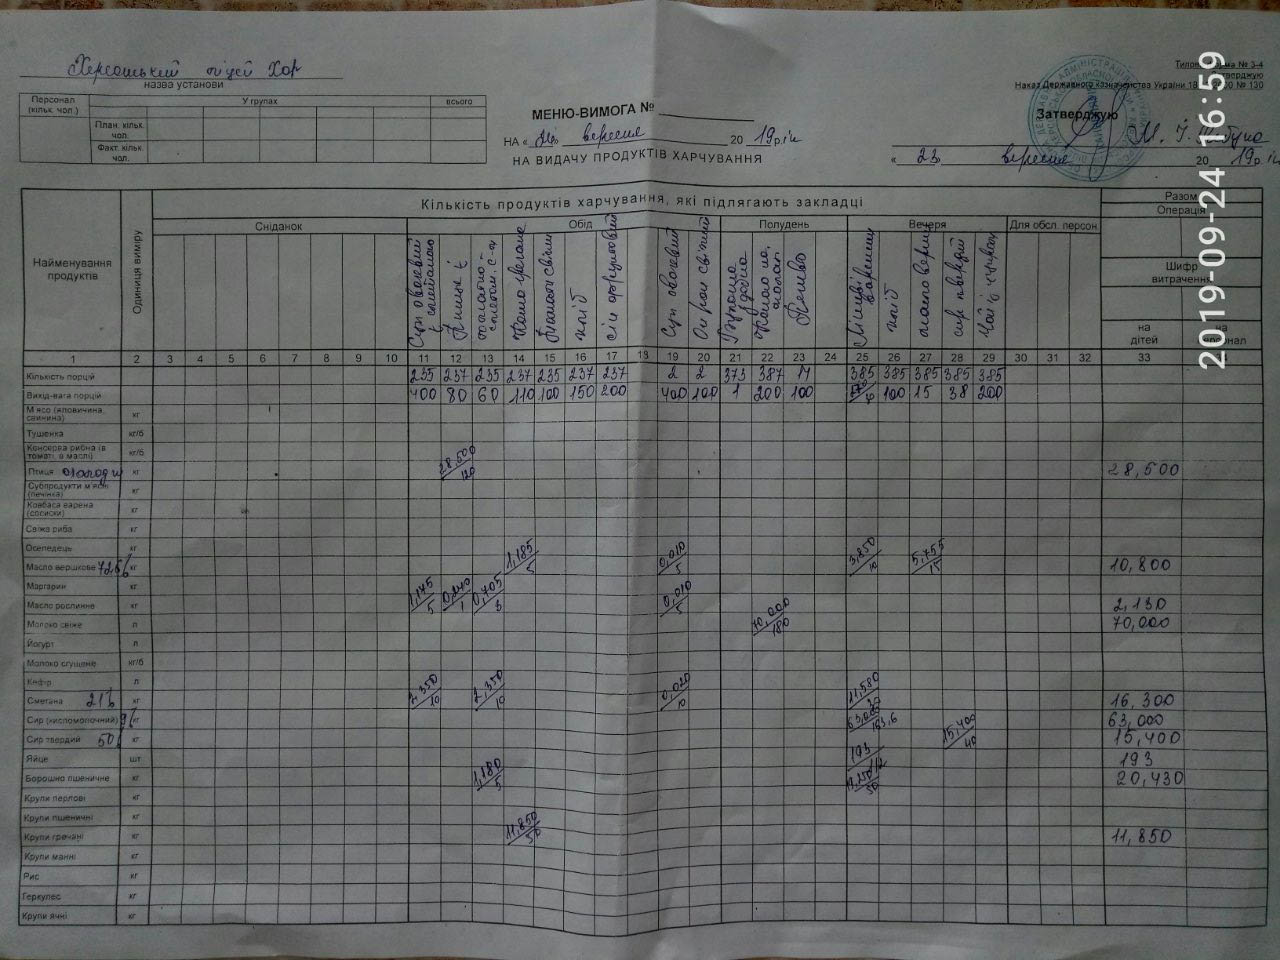 Херсонський ліцей ХОР
назва установи
Типова форма № 3-4
Затверджую
Наказ Державного казначейства України 18 № 130
Персонал (кільк. чол.)
У групах
всього
План. кільк. чол.
Факт. кільк. чол.
МЕНЮ-ВИМОГА №
НА « » вересня 20 19 рік
НА ВИДАЧУ ПРОДУКТІВ ХАРЧУВАННЯ
Затверджую
« 23 вересня 20 19р.
2019-09-24 16:59
Найменування продуктів
Одиниця виміру
Кількість продуктів харчування, які підлягають закладці
Разом
Операція
Сніданок
Обід
Полудень
Вечеря
Для обсл. персон.
Шифр витрачення
на дітей
на персонал
Суп овочевий зі сметаною
Каша гречана
хліб
Суп овочевий
Печиво
Лінивці вареники
хліб
масло верш
сир твердий
Чай з цукром
1 2 3 4 5 6 7 8 9 10 11 12 13 14 15 16 17 18 19 20 21 22 23 24 25 26 27 28 29 30 31 32 33
Кількість порцій 235 237 235 237 235 237 237 2 2 373 387 14 385 385 385 385 385
Вихід-вага порцій 400 80 60 110 100 150 200 400 100 1 200 100 100 15 38 200
М'ясо (яловичина, свинина) кг
Тушенка кг/б
Консерва рибна (в томаті, в маслі) кг/б
Птиця кг 28,500/120 28,500
Субпродукти м'ясні (печінка) кг
Ковбаса варена (сосиски) кг
Свіжа риба кг
Оселедець кг
Масло вершкове 72% кг 1,185/5 0,010/5 3,850/10 5,755/15 10,800
Маргарин кг
Масло рослинне кг 1,175/5 0,240/1 0,705/3 0,010/5 2,130
Молоко свіже л 70,000/180 70,000
Йогурт л
Молоко сгущене кг/б
Кефір л
Сметана 21% кг 2,350/10 2,350/10 0,020/10 11,580/30 16,300
Сир (кисломолочний) 9% кг 63,000/163,6 63,000
Сир твердий 50% кг 15,400/40 15,400
Яйце шт 193 193
Борошно пшеничне кг 1,180/5 19,250/50 20,430
Крупи перлові кг
Крупи пшеничні кг
Крупи гречані кг 11,850/50 11,850
Крупи манні кг
Рис кг
Геркулес кг
Крупи ячні кг